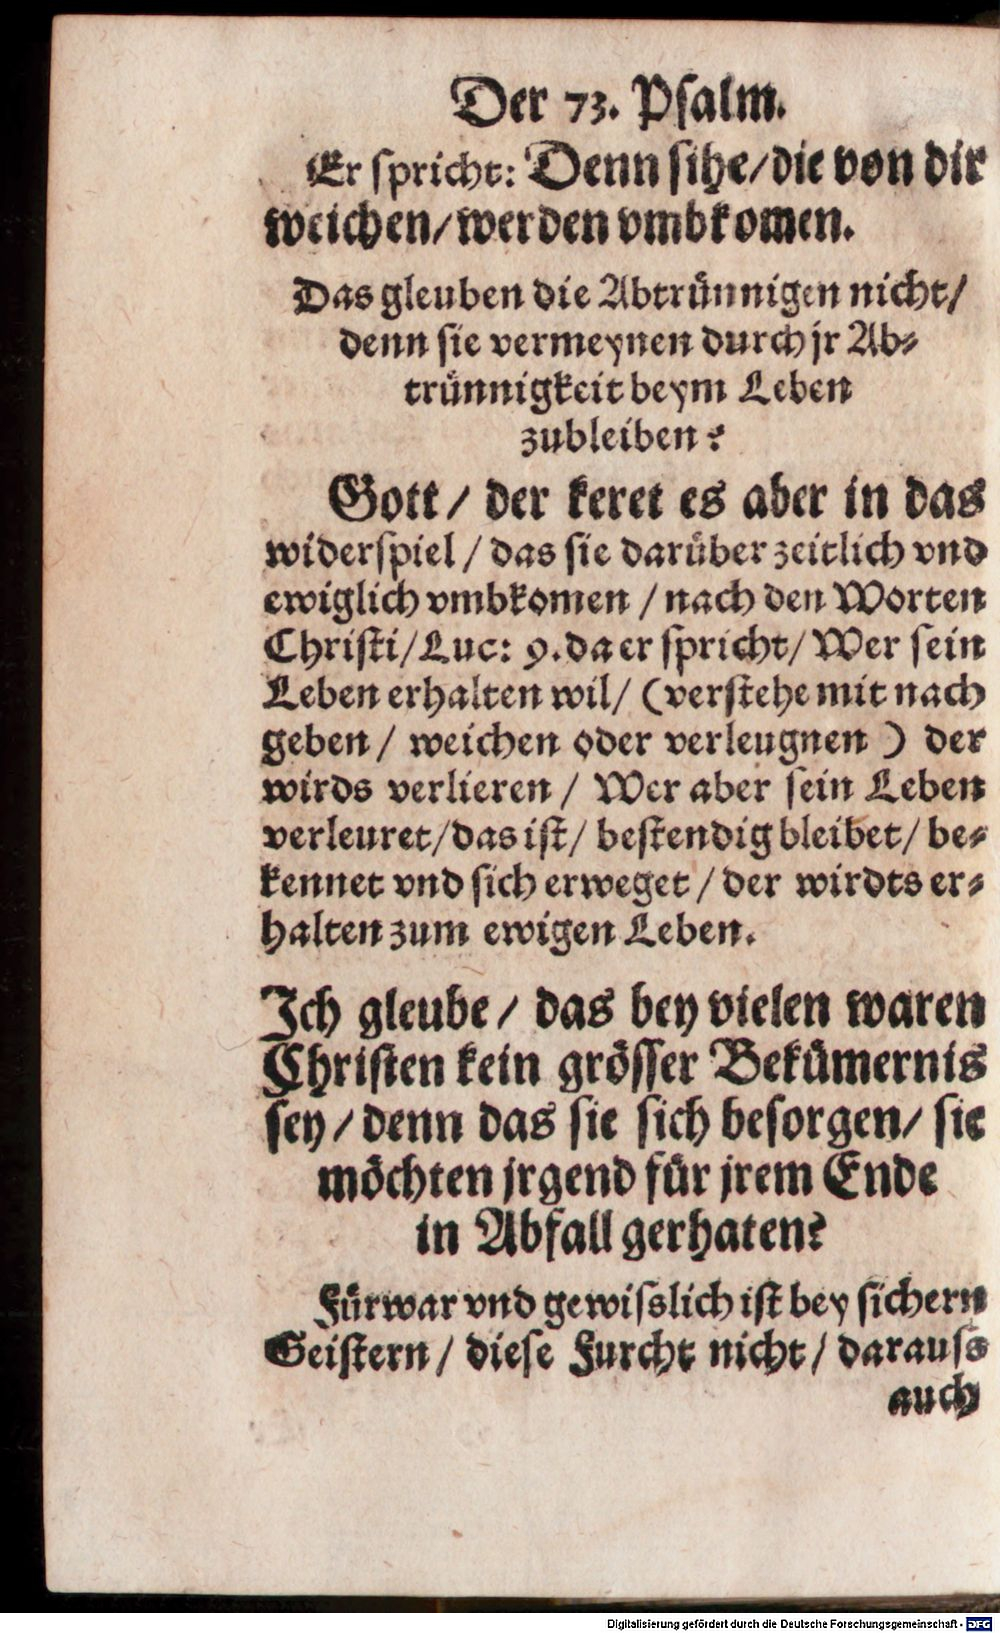 Der 73. Psalm.
Er spricht: Denn sihe/die von dir
weichen/werden vmbkomen.
Das gleuben die Abtrünnigen nicht/
denn sie vermeynen durch jr Ab-
trünnigkeit beym Leben
zubleiben?
Gott/ der keret es aber in das
widerspiel / das sie darüber zeitlich vnd
ewiglich vmbkomen / nach den Worten
Christi/Luc: 9. da er spricht/ Wer sein
Leben erhalten wil/ (verstehe mit nach
geben / weichen oder verleugnen ) der
wirds verlieren / Wer aber sein Leben
verleuret/das ist/ bestendig bleibet/ be-
kennet vnd sich erweget / der wirdts er-
halten zum ewigen Leben.
Ich gleube / das bey vielen waren
Christen kein grösser Bekümernis
sey / denn das sie sich besorgen/ sie
möchten jrgend für jrem Ende
in Abfall gerhaten?
Fürwar vnd gewisslich ist bey sichern
Geistern / diese Furcht nicht / darauss
auch
Digitalisierung gefördert durch die Deutsche Forschungsgemeinschaft - DFG